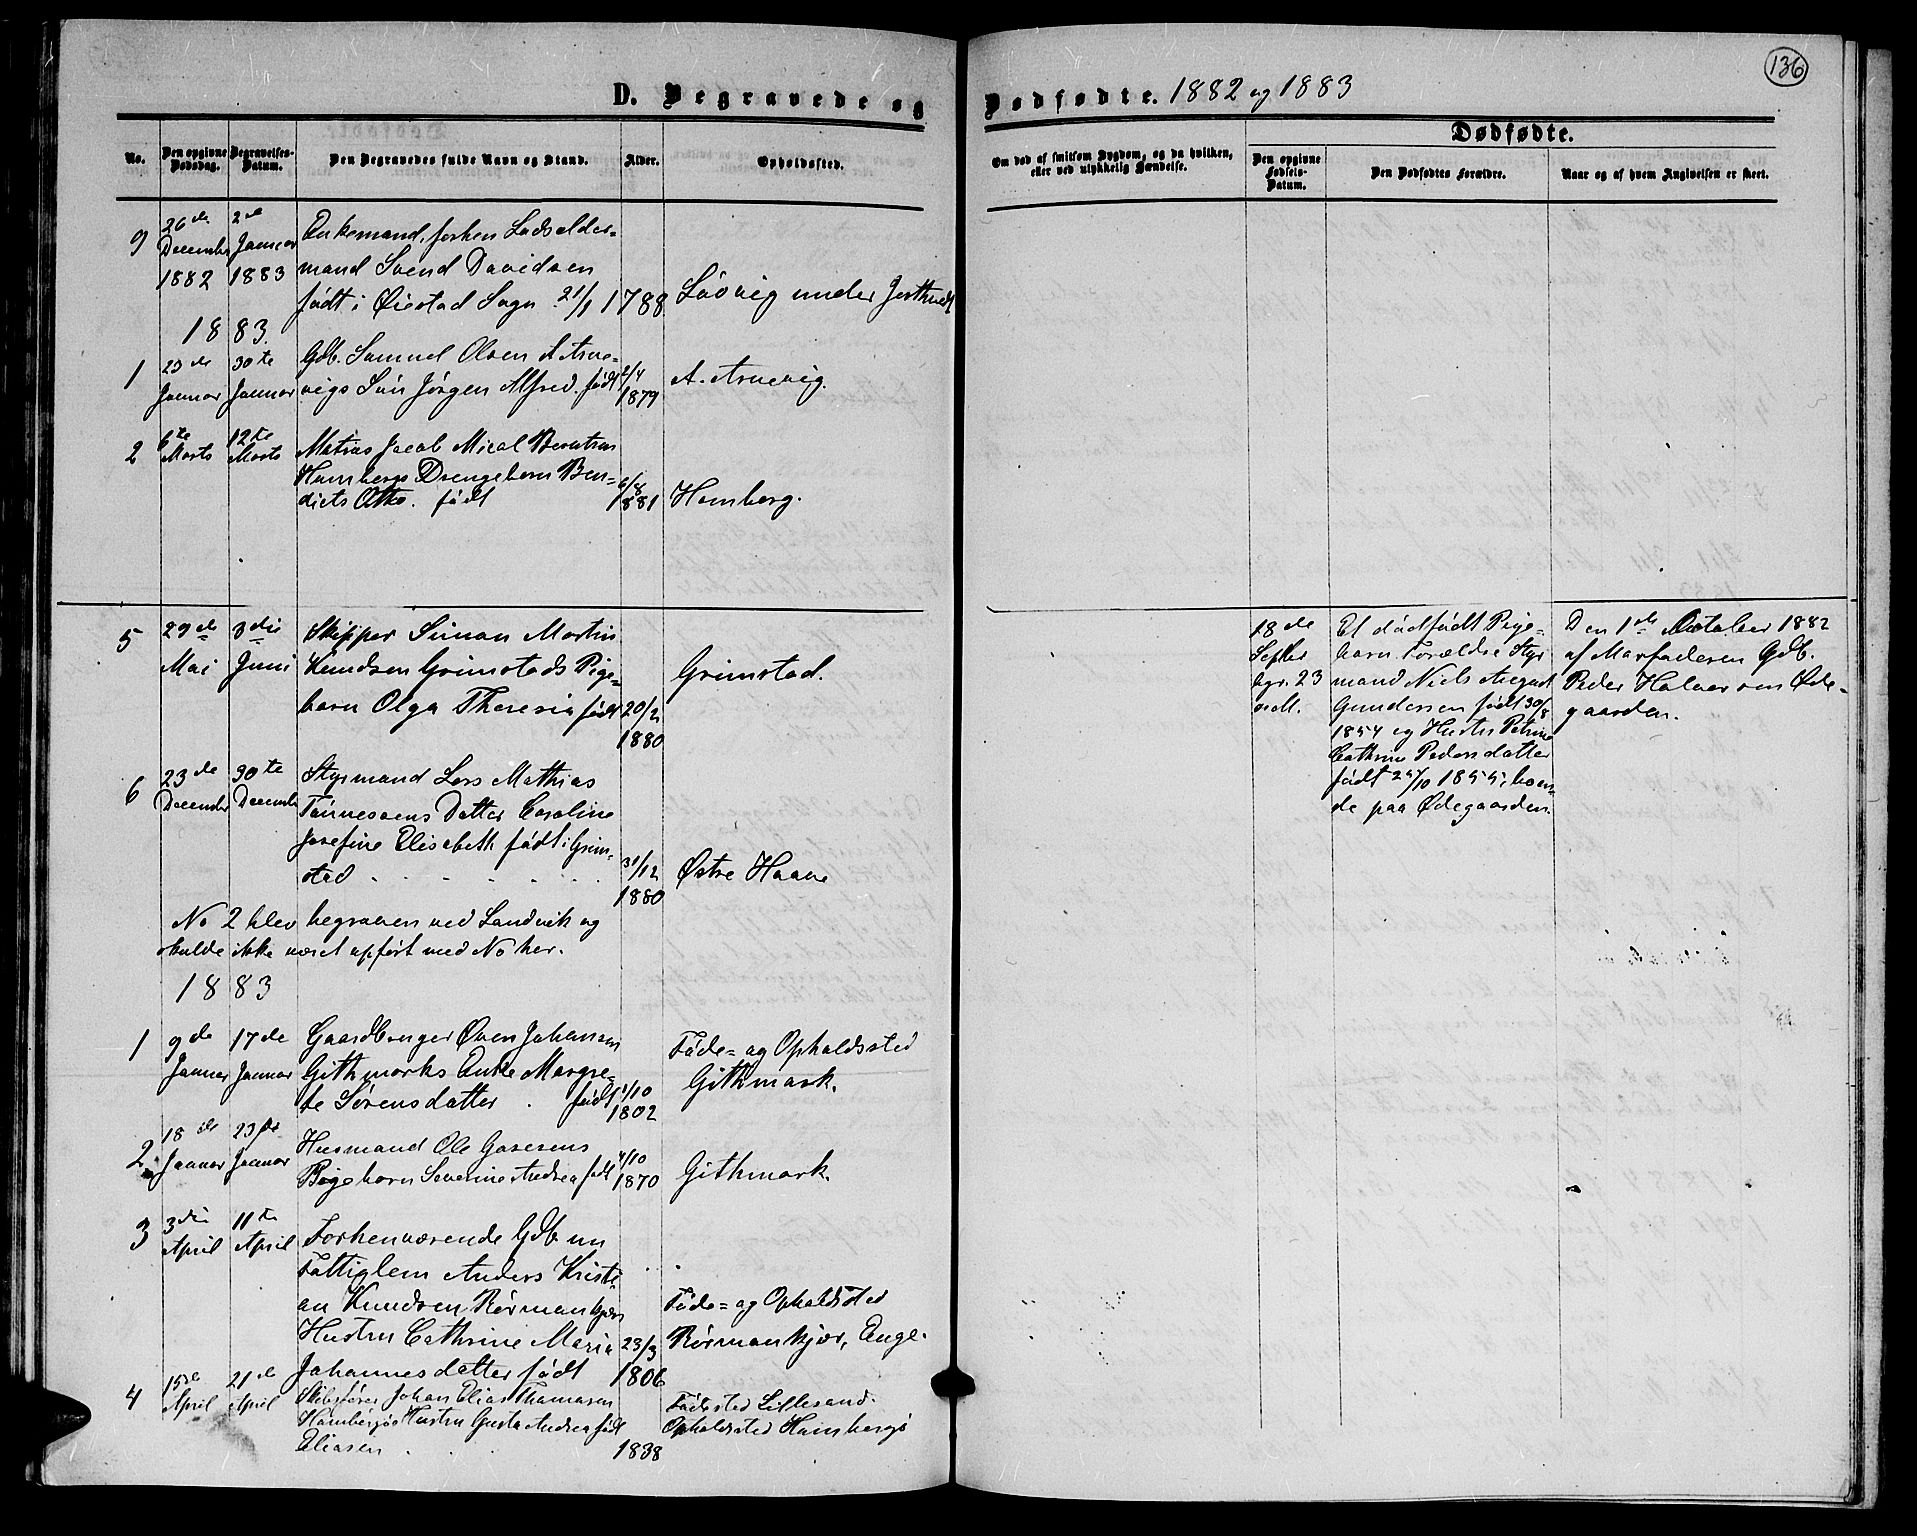 136
D. Begravede og Dødfødte. 1882 og 1883
No.
Den opgivne Dødsdag.
Begravelses-Datum.
Den Begravedes fulde Navn og Stand.
Alder.
Opholdssted.
Om død af smitsom Sygdom, og da hvilken, eller ved ulykkelig Hændelse.
Dødfødte.
Den opgivne Fødsels-Datum.
Den Dødfødtes Forældre.
Naar og af hvem Angivelsen er skeet.
9
26de December 1882
2de Januar 1883
Enkemand, forhen Lodsolder-
mand Svend Davidsen
født i Øiestad Sogn 21/1 1788
1883.
1
30te Januar
Gdb. Samuel Olsen A Arne-
vigs Søn Jørgen Alfred. født 2/4 1879
A. Arnevig.
2
6te Marts
12te Marts
Matias Jacob Mical
Hombergs Drengebarn Ben-
dicts Otto. født 6/8 1881
Homberg.
5
29de Mai
3die Juni
Skipper Simon Martin
Knudsen Grimstads Pige-
barn Olga Theresia født 20/2 1880
Grimstad.
6
23de December
30te December
Styrmand Lars Mathias
Tønnesens Datter Caroline
Josefine Elisabeth født i Grim-
stad 31/12 1880
Østre Haave
No 2 blev begraven ved Landvik og
skulde ikke været opført med No her.
1883
1
9de Januar
17de Januar
Gaardbruger Oven Johansen
Githmarks Enke Margre-
te Sørensdatter . født 1/10 1802
Føde- og Opholdssted
Githmark.
2
18de Januar
23de Januar
Husmand Ole Gasesens
Pigebarn Severine Andrea født 4/10 1870
Githmark.
3
3die April
11te April
Forhenværende Gdb nu
Fattiglem Anders Kristi-
an Knudsen Rørmankjørs
Hustru Cathrine Maria
Johannesdatter født 23/3 1806
Føde- og Opholdsted
Rørmankjør, Enge.
4
15de April
21de April
Skibsfører Johan Elias Thomasen
Hombergs Hustru Gusta Andrea født
Eliasen . . . 1838
Fødested Lillesand.
Opholdsted Homborgø
18de
Septbr
bgr. 23
Et dødfødt Pige-
barn. Forældre Styr
mand Niels August
Gundersen født 30/8
1854 og Hustru Petrine
Cathrine Pedersdatter
født 24/10 1855, boen-
de paa Ødegaarden.
Den 1de October 1882
af Morfaderen Gdb.
Peder Halvorsen Øde-
gaarden.